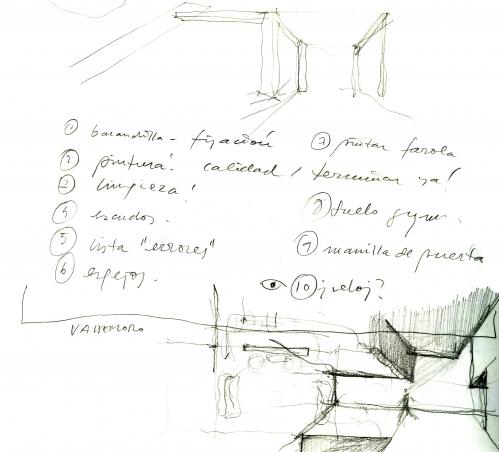 ① barandilla - fijación
② pintura! calidad / terminar ya!
③ limpieza!
④ escudos.
⑤ lista "errores"
⑥ espejos.
⑦ pintar farola
⑧ suelo gym.
⑨ manilla de puerta
⑩ ¿reloj?
VALDEMORO